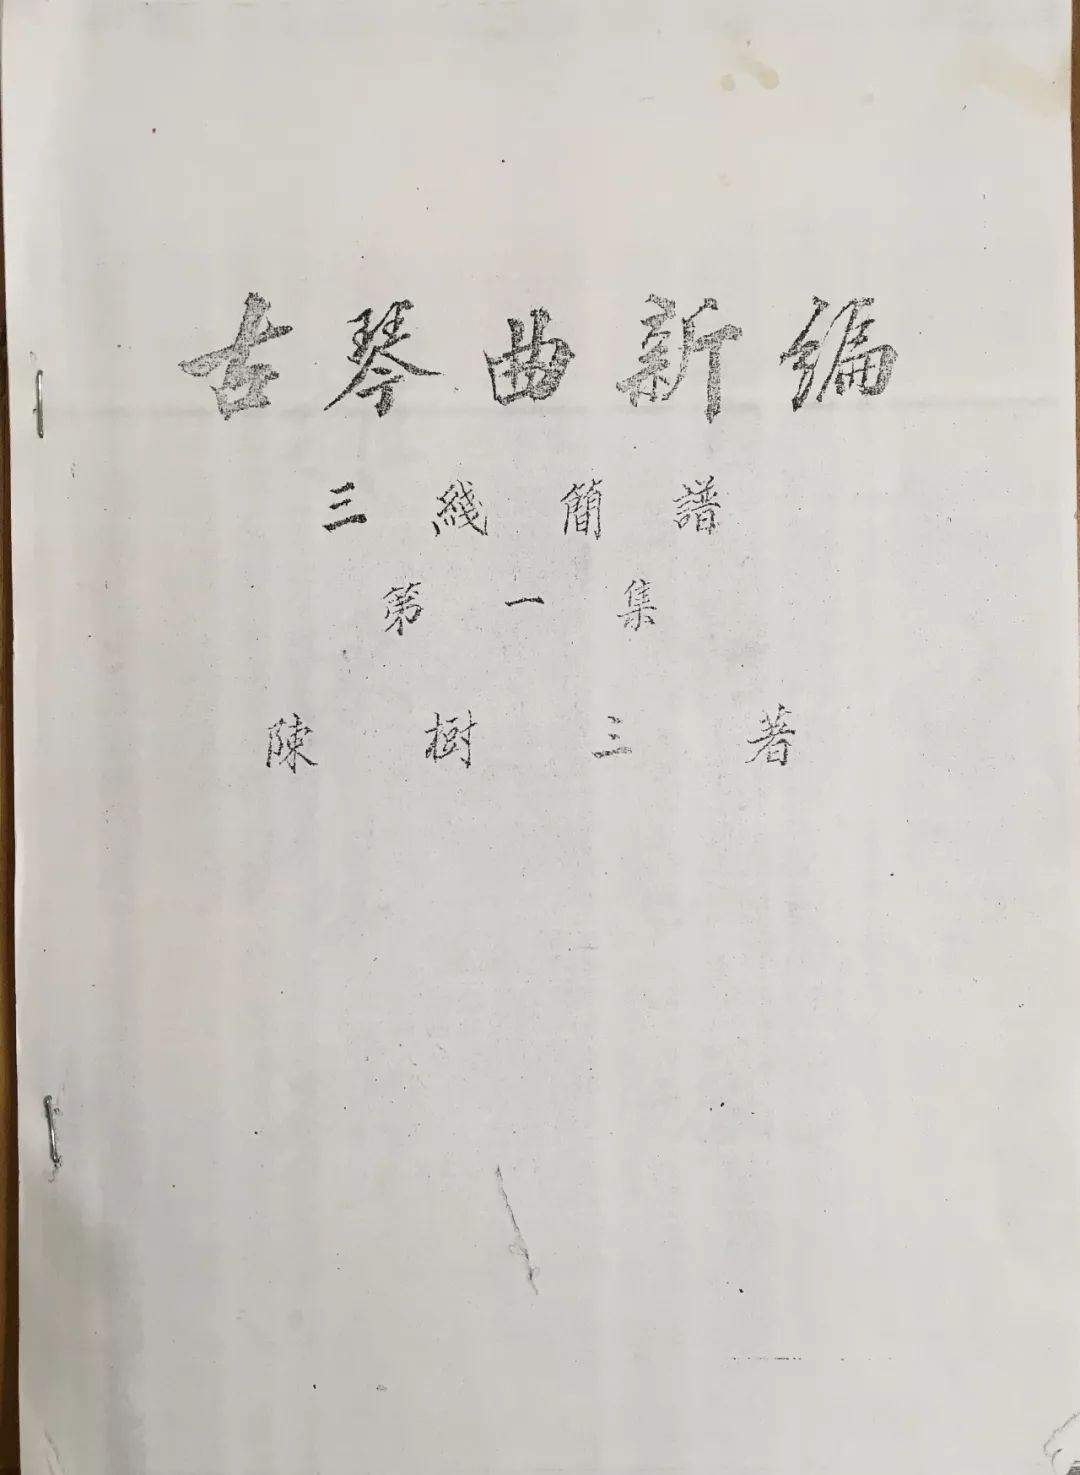 古琴曲新編
三綫簡譜
第一集
陳樹三著